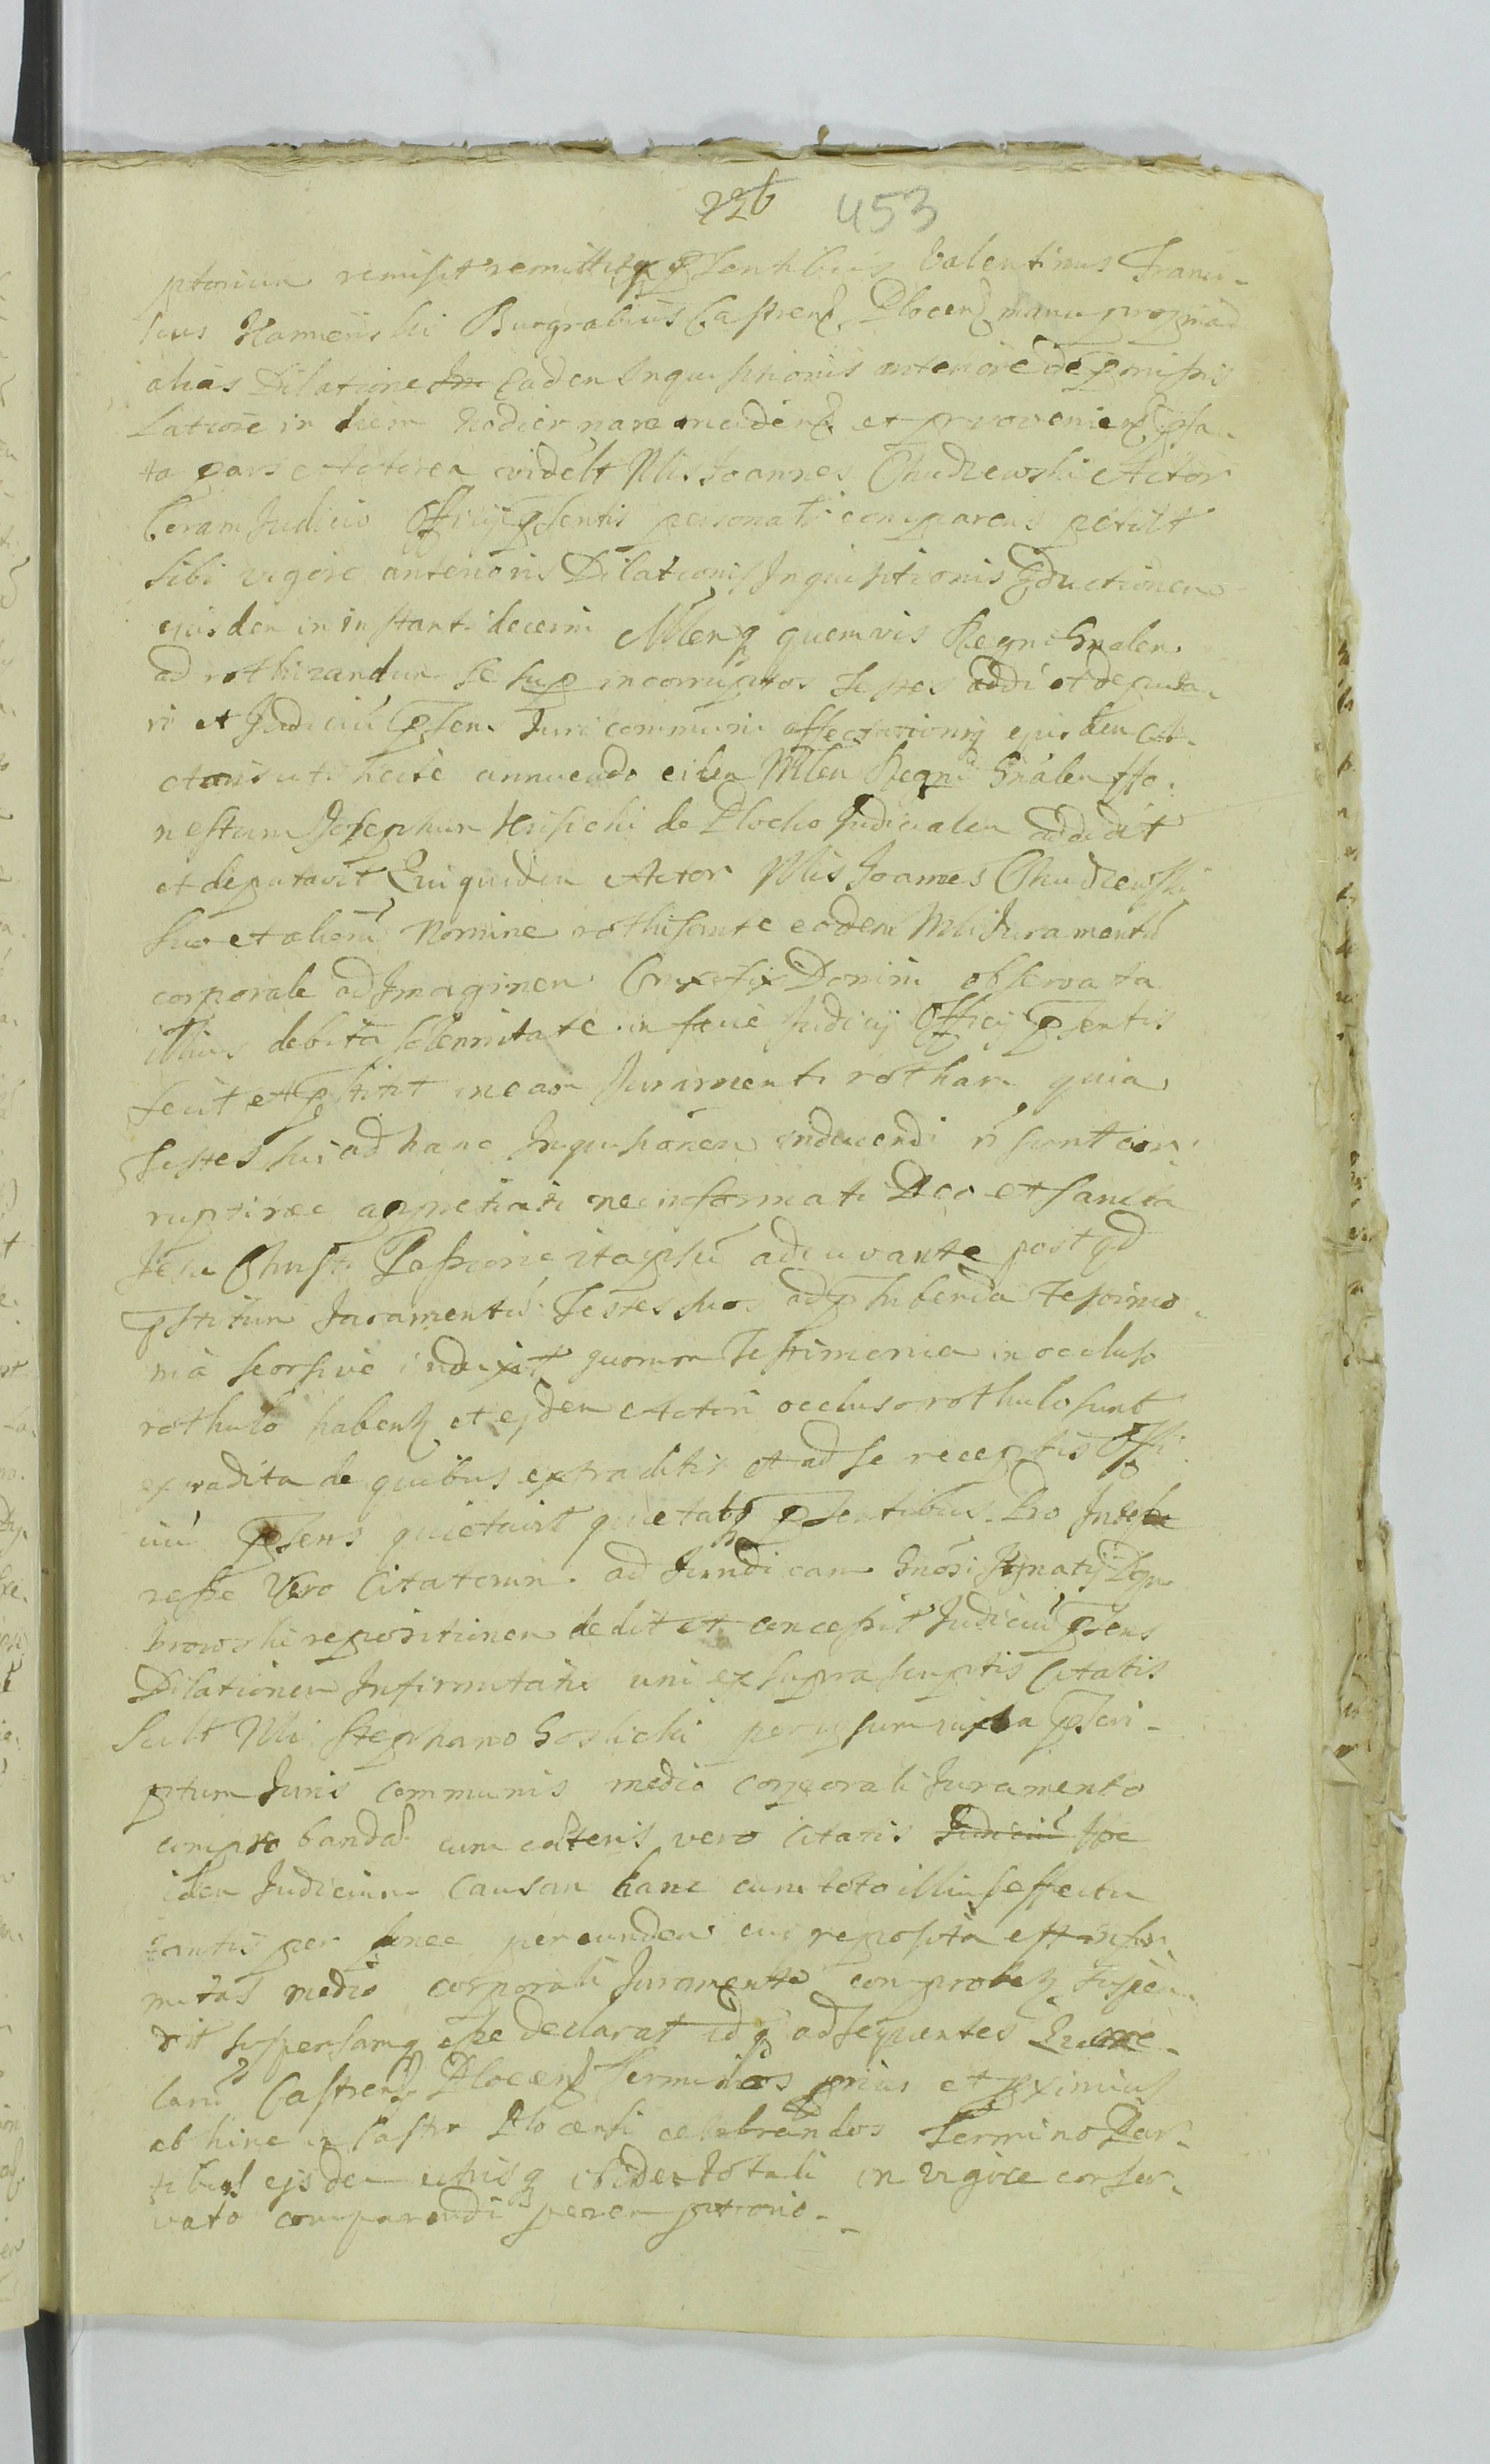 226 453
ptorium remisit remittitq psentibus Valentinus Franci-
scus Kamieński Burgrabius Castren Plocen manu propria
alias Dilatione Eadem Inquisitionis anteriore de pmissis
Latiore in diem hodiernam inciden et provenien psa-
ta pars Actorea videlt Nlis Joannes Chudzewski Actor
Coram Judicio Officij psentis personalr comparens petiit
sibi vigore anterioris Dilationis Inquisitionis Eductionem
ejusdem in instanti decerni Mlemq quemvis Regni Gnalem
ad rothizandum se sup incorruptos Testes addi et deputa-
ri et Judiciu psens Juri communi affectationiq ejusdem A-
ctoris uti licite annuendo eidem Mlem Regni Gnalem Ho-
nestum Josephum de Plocko Judicialem addidit
et deputavit Qui quidem Actor Nlis Joannes Chudzewski
suo et aliorū Nomine rothisante eodem Mli Juramentū
corporale ad Imaginem Crucifixi Domini observata
illius debita solennitate in facie Judicij Officij psentis
fecit et pstitit in eam Juramenti rotham quia
Testes sui ad hanc Inquisitionem inducendi ñ sunt cor-
rupti nec appretiati nec informati Deo et Sancta
Jesu Christi Passione ita ipsū adiuvante post qd
pstitum Juramentū Testes suos ad phibenda Testimo-
nia seorsive induxit quorum Testimonia in occluso
rothulo habentq et ejdem Actori occluso rothulo sunt
extradita de quibus extraditis et ad se receptis Offi-
ciū psens quietavit quietatq psentibus. Pro Inte-
resse Vero Citatorum ad Juridicam Gnosi Ignatij Dem-
browski repositionem dedit et concessit Judiciū psens
Dilationem Infirmitatis uni ex suprascriptis Citatis
scilt Nli Stephano Goslicki per ipsum iuxta pscri-
ptum Juris communis medio corporali Juramento
comprobandae cum caeteris vero Citatis
idem Judicium Causam hanc cum toto illius effectu
tantisper donec per eundem cui reposita est infir-
mitas medio corporali Juramento comprobetq suspen-
dit suspensamq esse declarat idq ad sequentes Quere-
laru Castren Plocen Terminos prius et pximius
ab hinc in Castro Plocensi celebrandos Termino Par-
tibus ejsdem utrisq ibidem totali in vigore conser-
vato comparendi peremptorio.